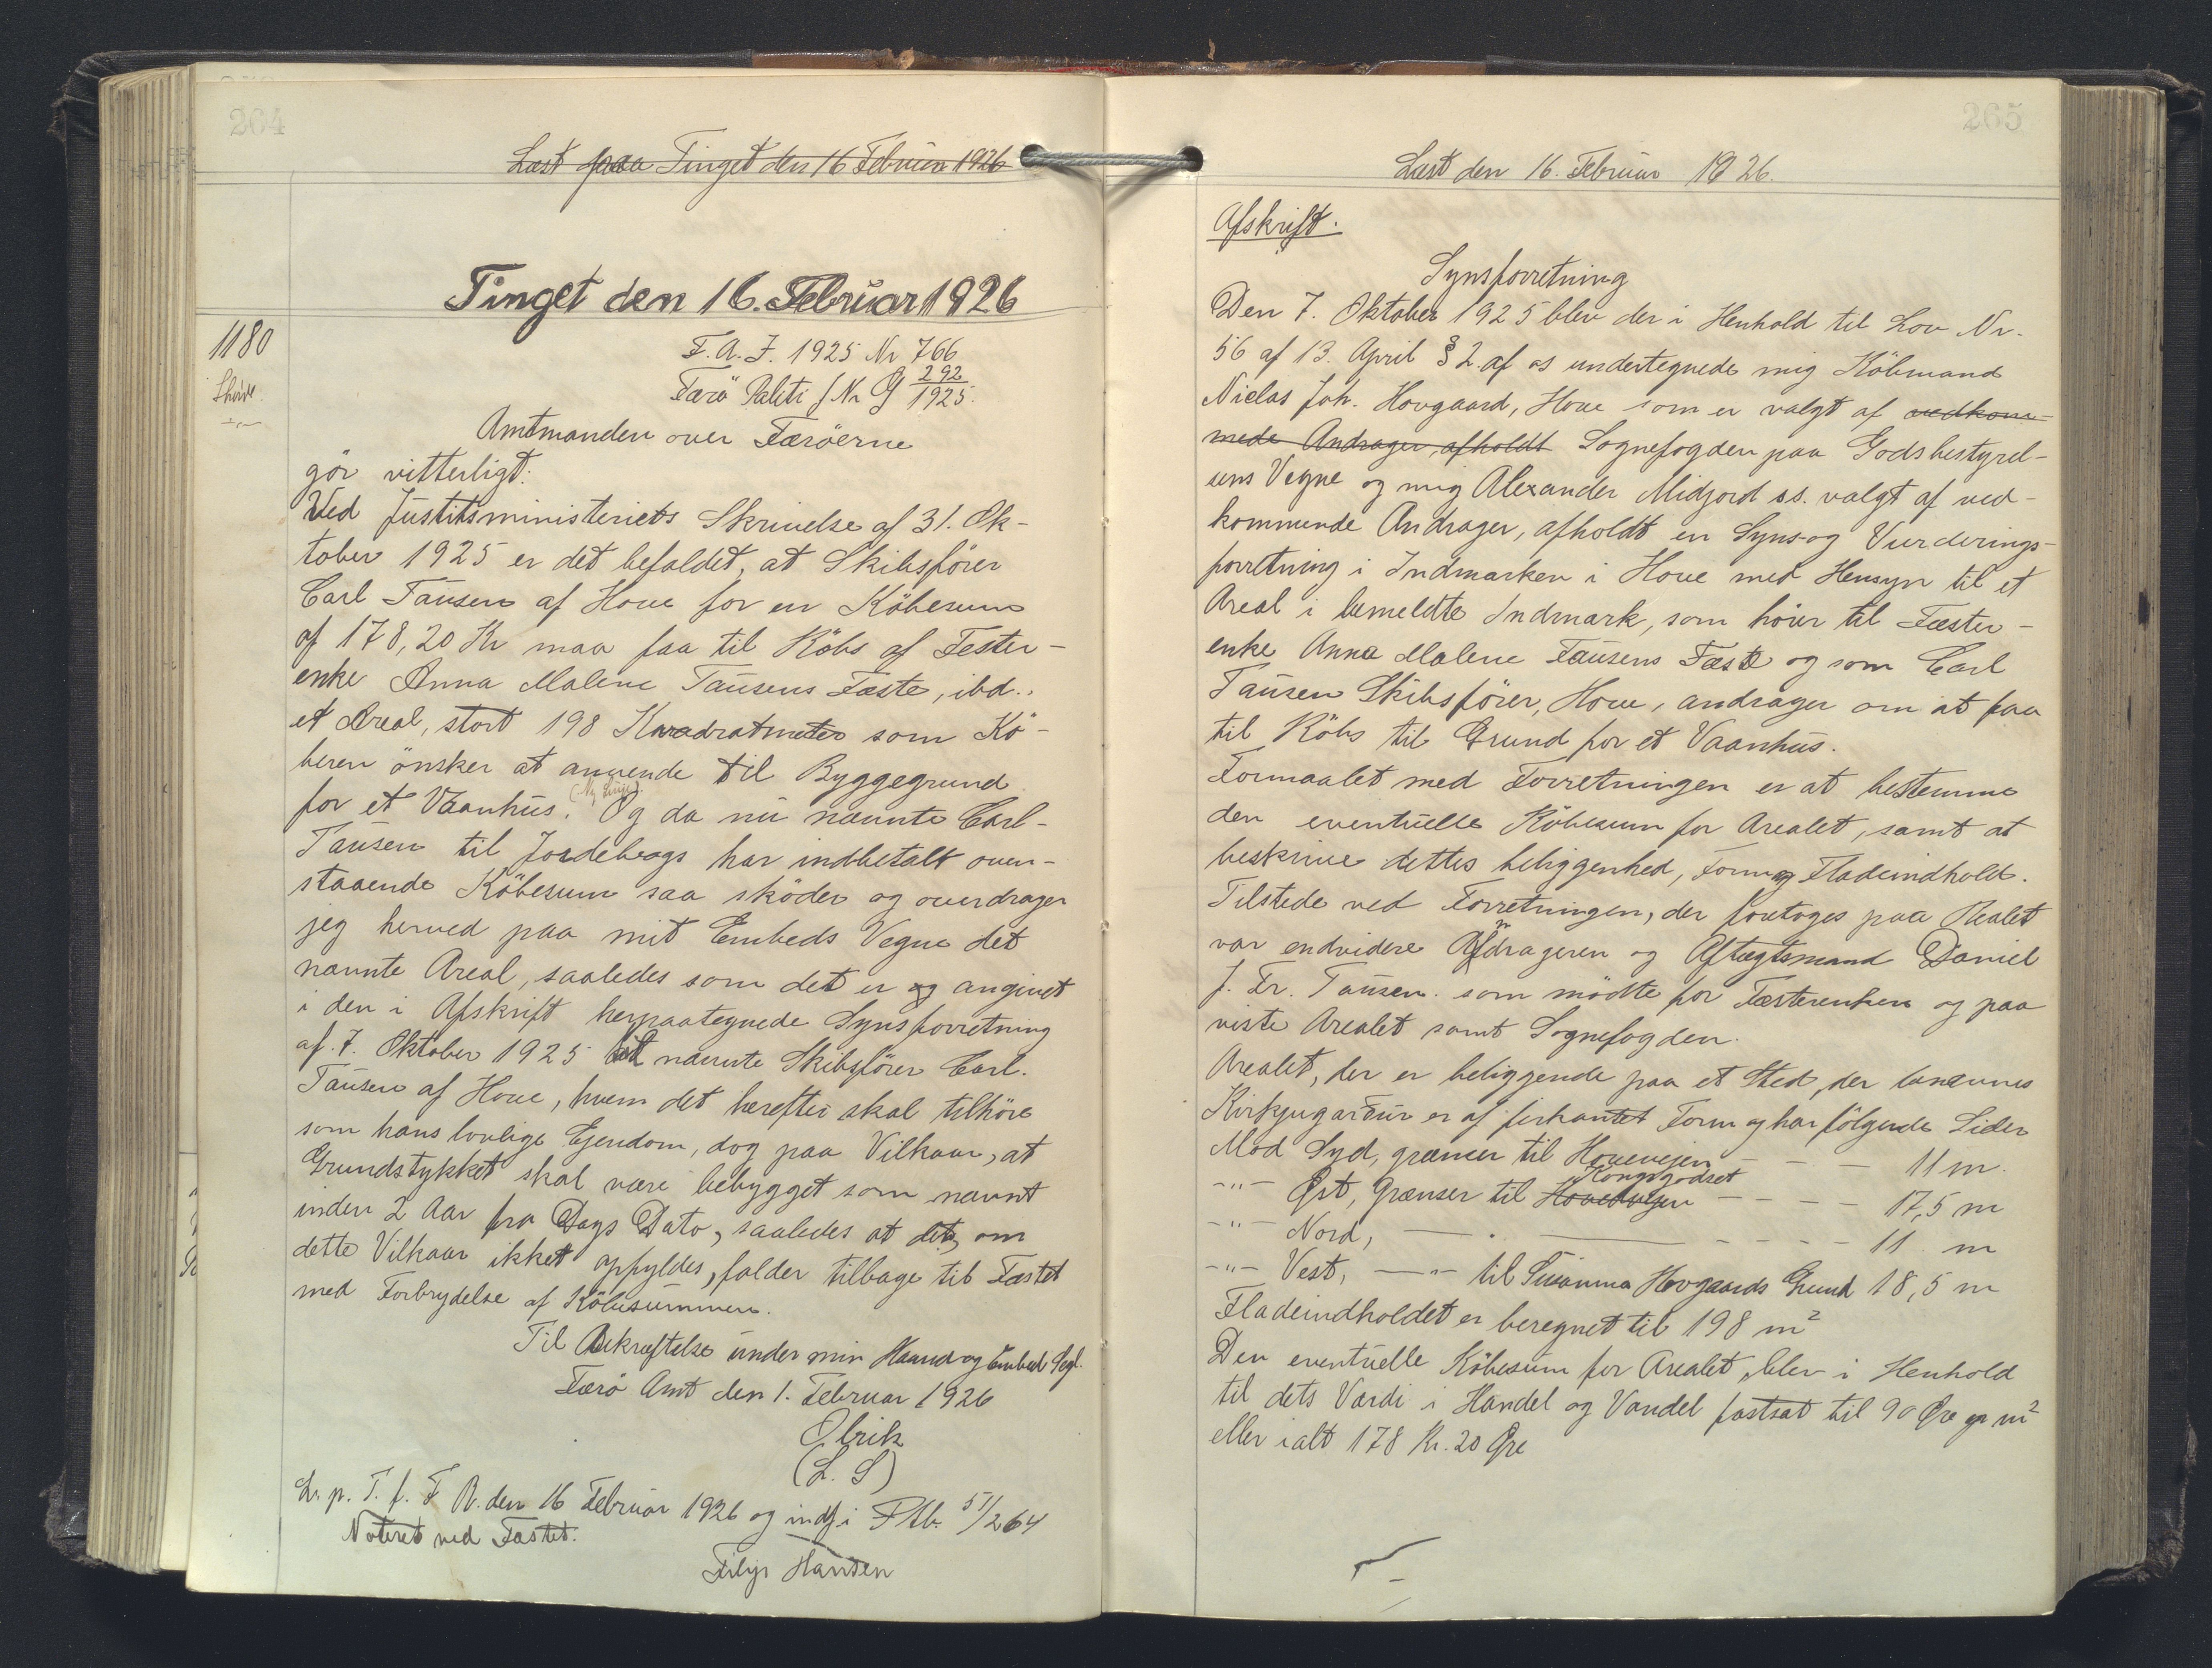 264
Læst paa Tinget den 16 Februar 1926
Tinget den 16. Februar 1926
1180
F. A. J. 1925 Nr 766
Færö Politi J Nr G 292/1925.
Amtmanden over Færöerne
gör vitterligt:
Ved Justitsministeriets Skrivelse af 31. Ok-
tober 1925 er det befaldet, at Skibsförer
Carl Tausen af Hove for en Köbesum
af 178,20 Kr maa faa til Köbs af Fester-
enke Anna Malene Tausens Fæste, ibd.,
et Areal, stort 198 Kvadratmeter som Kö-
beren önsker at anvende til Byggegrund
for et Vaanhus. (Ny Linje). Og da nu nævnte Carl-
Tausen til Jordebogs har indbetalt oven-
staaende Köbesum saa sköder og overdrager
jeg herved paa mit Embeds Vegne det
nævnte Areal, saaledes som det er og angivet
i den i Afskrift herpaategnede Synsforretning
af 7. Oktober 1925 til nævnte Skibsförer Carl.
Tausen af Hove, hvem det herefter skal tilhöre
som hans lovlige Ejendom, dog paa Vilkaar, at
Grundstykket skal være bebygget som nævnt
inden 2 Aar fra Dags Dato, saaledes at det, om
dette Vilkaar ikke opfyldes, falder tilbage til Fæstet
med Forbrydelse af Köbesummen.
Til Bekræftelse under min Haand og Embeds Segl.
Færö Amt den 1. Februar 1926
Olrik
(L. S)
L. p. T. f. F R. den 16 Februar 1926 og indf i Ptb. 51/264
Noteret ved Fæstet.
Filip Hansen
265
Læst den 16. Februar 1926.
Afskrift.
Synsforretning
Den 7. Oktober 1925 blev der i Henhold til Lov Nr.
56 af 13. April § 2. af os undertegnede mig Köbmand
Niclas Joh. Hovgaard, Hove som er valgt af vedkom-
mede Andrager, afholdt Sognefogden paa Godsbestyrel-
sens Vegne og mig Alexander Midjord s.s. valgt af ved-
kommende Andrager, afholdt en Syns- og Vurderings-
forretning i Indmarken i Hove med Hensyn til et
Areal i bemeldte Indmark, som hörer til Fæster-
enke Anna Malene Tausens Fæste og som Carl
Tausen Skibsförer, Hove, andrager om at faa
til Köbs til Grund for et Vaanhus.
Formaalet med Forretningen er at bestemme
den eventuelle Köbesum for Arealet, samt at
beskrive dettes beliggenhed, Form og Fladeindhold.
Tilstede ved Forretningen, der foretoges paa Arealet
var endvidere Andrageren og Aftægtsmand Daniel
J. Fr. Tausen. som mödte for Fæsterenken og paa
viste Arealet samt Sognefogden.
Arealet, der er beliggende paa et Sted, der benævnes
Kirkjugarður er af firkantet Form og har fölgende Sider
Mod Syd, grænser til Hovevejen - - - 11 m.
-"- Øst, Grænser til Hovedvejen Kongsgodset - - - - 17,5 m
-"- Nord, — " — - - - - 11 m
-"- Vest, —"— til Susanna Hovgaards Grund 18,5 m
Fladeindholdet er beregnet til 198 m²
Den eventuelle Köbesum for Arealet, blev i Henhold
til dets Værdi i Handel og Vandel fastsat til 90 Øre pr m²
eller ialt 178 Kr. 20 Øre